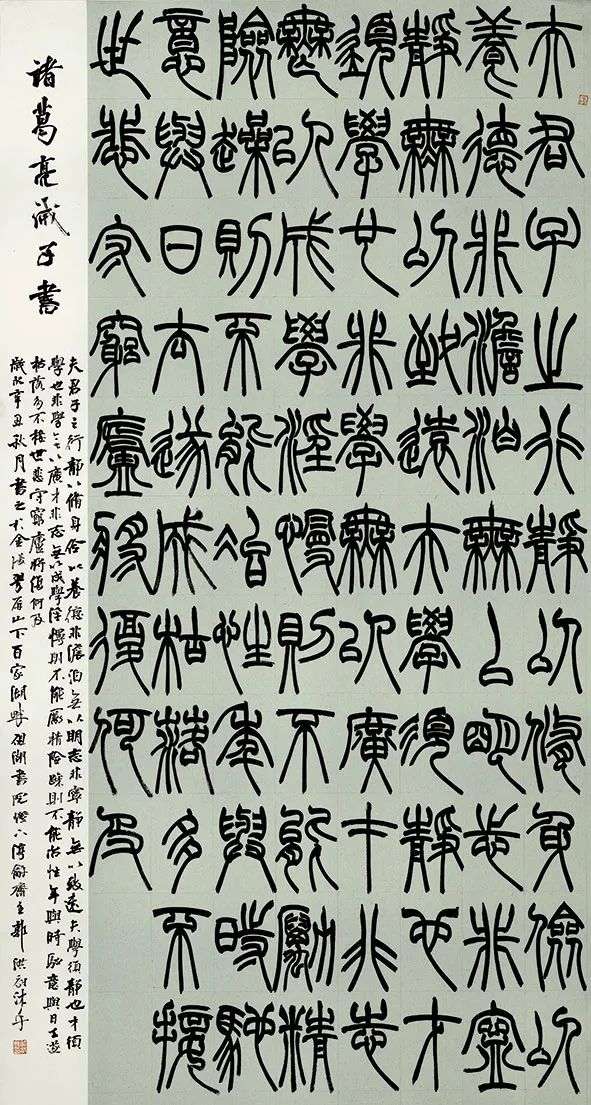 夫君子之行靜以修身儉以
養德非澹泊無以明志非寧
靜無以致遠夫學須靜也才
須學也非學無以廣才非志
無以成學淫慢則不能勵精
險躁則不能冶性年與時馳
意與日去遂成枯落多不接
世悲守窮廬將復何及
諸葛亮誡子書
夫君子之行靜以脩身儉以養德非澹泊無以明志非寧靜無以致遠夫學須靜也才須
學也非學無以廣才非志無以成學淫慢則不能勵精險躁則不能治性年與時馳意與日去遂
枯落多不接世悲守窮廬將復何及
歲次辛丑秋月書之於金陵翠屏山下百家湖畔湖書院